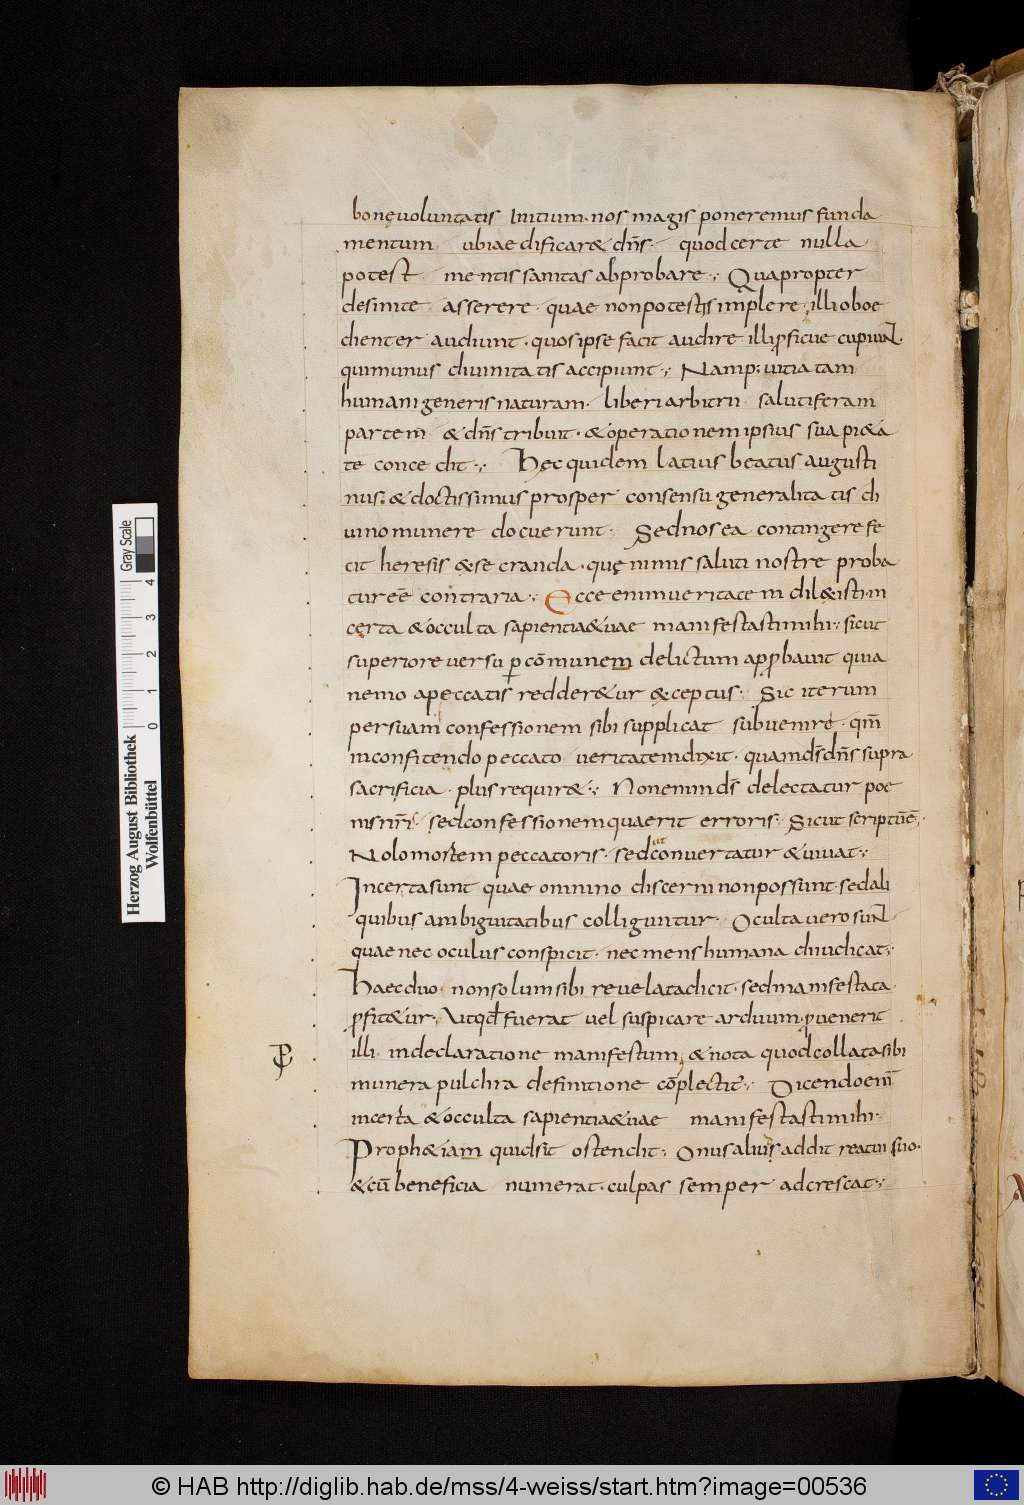 bonę voluntatis Initium· nos magis poneremus funda
mentum ubi aedificar& dn̄s· quod certe nulla
potest mentis sanitas abprobare·; Quapropter
desinite asserere· quae non potestis implere· illi oboe
dienter audiunt· quos ipse facit audire illi ꝓficue cupiunt·
qui munus divinitatis accipiunt·; Namq; vitiatam
humani generis naturam· liberi arbitrii salutiferam
partem & dn̄s tribuit· & operationem ipsius sua pi&a
te concedit·; Hęc quidem latius beatus augusti
nus; & doctissimus prosper consensu generalitatis di
vino munere docuerunt· Sed nos ea contingere fe
cit heresis exsecranda· quę nimis saluti nostre proba
tur eē contraria·; Ecce enim veritatem dil&isti in
cęrta & occulta sapientia& uae manifestasti mihi·; sicut
superiore versu ꝑ cōmunem delictum apꝓbavit quia
nemo a peccatis redder&ur exceptus· Sic iterum
per suam confessionem sibi supplicat subvenire· qm̄
in confitendo peccato veritatem dixit· quam dī dn̄s supra
sacrificia plus requir&·; Non enim dī delectatur poe
nis nr̄is· sed confessionem quaerit erroris· Sicut scriptū ē;
Nolo mortem peccatoris· sed ut convertatur & vivat·;
Incerta sunt quae omnino discerni non possunt· sed ali
quibus ambiguitatibus colliguntur· Oculta vero sunt
quae nec oculus conspicit· nec mens humana diiudicat·;
Haec duo· non solum sibi revelata dicit· sed manifestata
ꝓfit&ur· Ut qđ fuerat vel suspicare arduum· ꝓvenerit
illi· in declaratione manifestum, & nota quod collata sibi
munera pulchra definitione cōplectit̄·; Dicendo enī
incerta & occulta sapientia& uae manifestasti mihi·
Proph&iam quid sit ostendit; Onus alius addit reatui suo·
& cū beneficia numerat· culpas semper adcrescat·;
Herzog August Bibliothek
Wolfenbüttel
0 1 2 3 4
Gray Scale
© HAB http://diglib.hab.de/mss/4-weiss/start.htm?image=00536